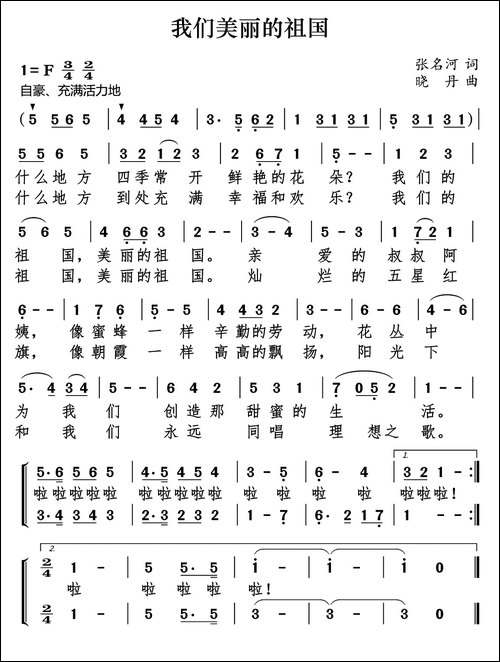 我们美丽的祖国
1=F 3/4 2/4
张名河 词
自豪、充满活力地
晓 丹 曲
(5 5 6 5 | 4 4 5 4 | 3· 5 6 2 | 1 3 1 3 1 | 5 1 3 1 3 1) |
5 5 6 5 | 3 2 1 2 3 | 2 6 7 1 | 5 - - | 1 2 3 |
什么地方 四季常 开 鲜艳的花 朵? 我们的
什么地方 到处充 满 幸福和欢 乐? 我们的
5 6 5 | 4 6 6 3 | 2 - - | 3 - 4 | 5 - 3 | 1 7 2 1 |
祖 国,美 丽的祖 国。 亲 爱的叔叔阿
祖 国,美 丽的祖 国。 灿 烂的五星红
6 - - | 1 7 6 | 5 - 1 | 4 4 3 2 | 3 - - | 6 - 6 | 4 - 6 |
姨, 像蜜蜂一样 辛勤的劳 动, 花丛中
旗, 像朝霞一样 高高的飘 扬, 阳光下
5· 4 3 | 3 - - | 6 4 2 | 5 3 1 | 7 0 5 2 | 1 - - |
为 我 们 创造那 甜蜜的 生 活。
和 我 们 永远 同唱 理 想之 歌。
1.
5·6 5 6 5 | 4·5 4 5 4 | 3 - 5 | 5 - 6 | 6 - 4 | 3 2 1 - :|
啦啦啦啦啦 啦啦啦啦啦 啦 啦 啦 啦 啦 啦 啦啦啦!
3·4 3 4 3 | 2·3 2 3 2 | 1 - 3 | 1 - 7 | 6· 2 1 7 | 1 - - :|
2.
2/4 1 - | 5 5·5 | i - | i - | i 0 ‖
啦 啦 啦啦 啦!
2/4 1 - | 5 5·5 | 1 - | 1 - | 1 0 ‖